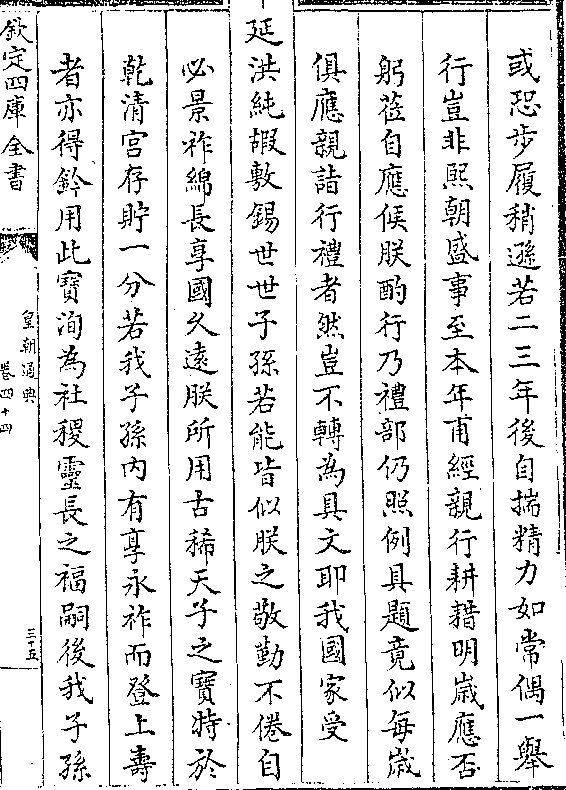 或恐步履稍遜若二三年後自揣精力如常偶一舉
行豈非熙朝盛事至本年甫經親行耕耤明嵗應否
躬莅自應候朕酌行乃禮部仍照例具題竟似每嵗
俱應親詣行禮者然豈不轉為具文耶我國家受
延洪純嘏敷錫世世子孫若能皆似朕之敬勤不倦自
必景祚綿長享國久遠朕所用古稀天子之寶特於
乾清宫存貯一分若我子孫内有享永祚而登上壽
者亦得鈐用此寶洵為社稷靈長之福嗣後我子孫
欽定四庫全書
皇朝通典
卷四十四
三十五